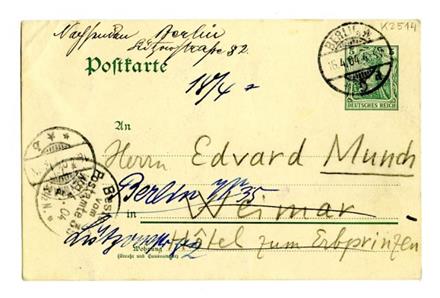 Nachsenden Berlin
Lützowstrasse 82.
K2514
Postkarte
BERLIN
18/4
DEUTSCHES REICH
An
Herrn Edvard Munch
Berlin W 35
in Weimar
Lützowstr 82
Hôtel zum Erbprinzen
Wohnung
(Straße und Hausnummer)
Best.
vom
Postamte